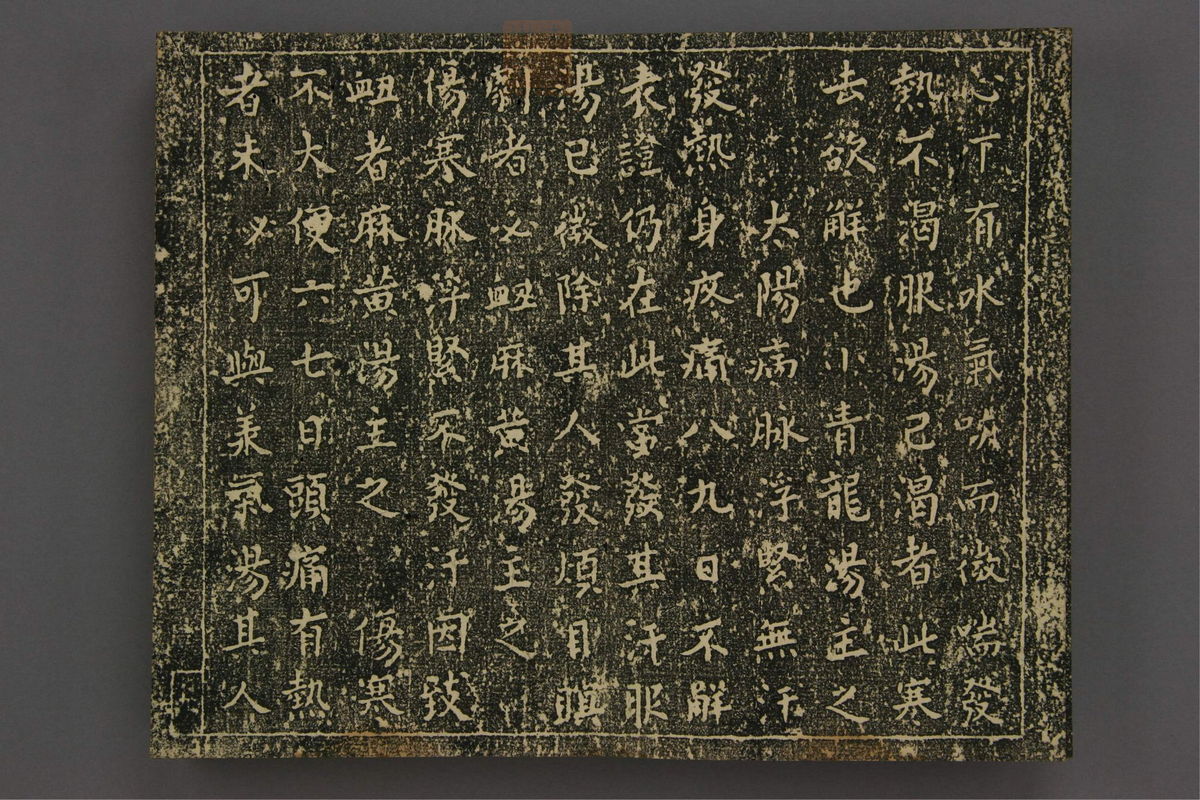 心下有水氣咳而微喘發
熱不渴服湯已渴者此寒
去欲解也小青龍湯主之
太陽病脉浮緊無汗
發熱身疼痛八九日不解
表證仍在此當發其汗服
湯已微除其人發煩目瞑
劇者必衄麻黄湯主之
傷寒脉浮緊不發汗因致
衄者麻黄湯主之　傷寒
不大便六七日頭痛有熱
者未必可與承氣湯其人